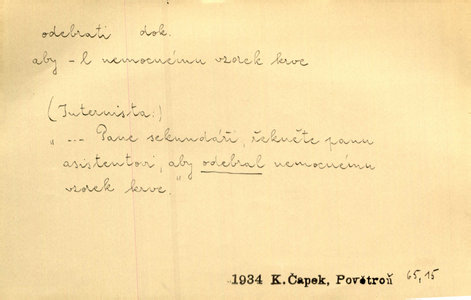 odebrati dok.
aby -l nemocnému vzorek krve
(Internista:)
"... Pane sekundáři, řekněte panu
asistentovi, aby odebral nemocnému
vzorek krve."
1934 K.Čapek, Povětroň 65,15